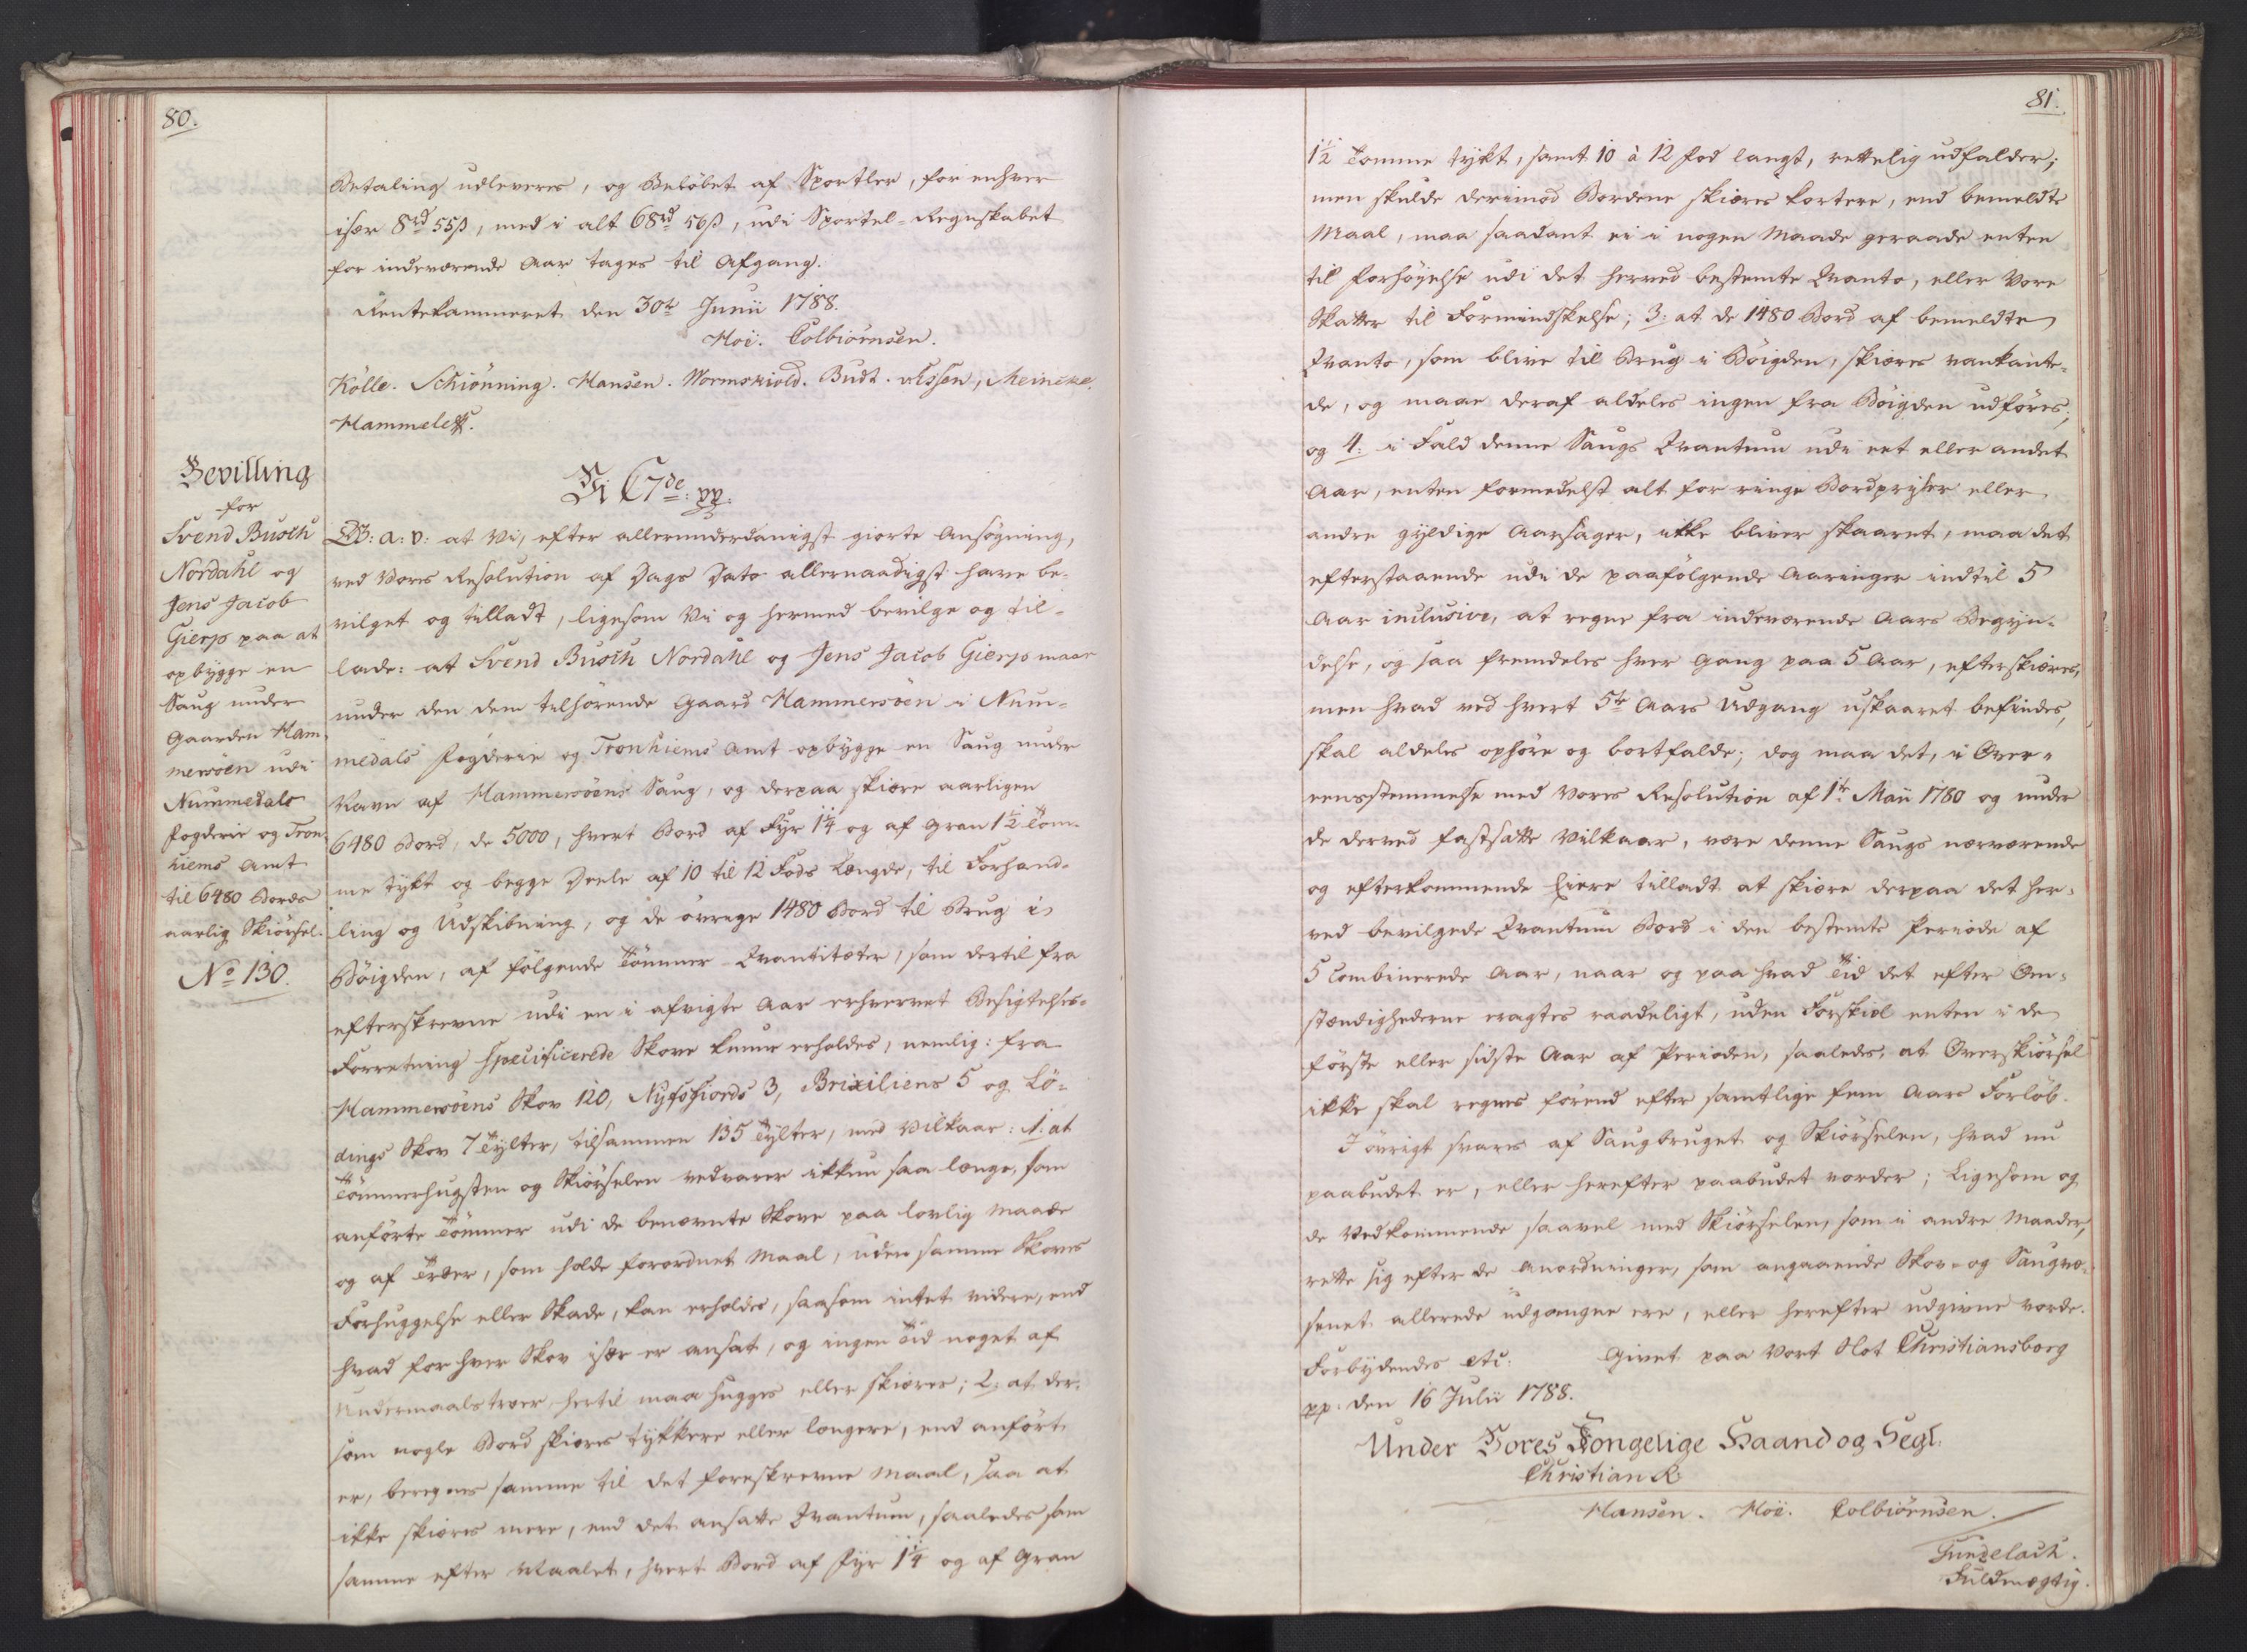 80.
Betaling udleveres, og Beløbet af Sportler, for enhver
især 8rd 55ß, med i alt 68rd 56ß, udi Sportel-Regnskabet
for indeværende Aar tages til Afgang.
Rentekammeret den 30te Junii 1788.
Hoë. Colbiørnsen.
Kölle. Schiønning. Hansen. Wormskiold. Budt. Meincke.
Hammeleff.
Bevilling
for
Svend Busch
Nordahl og
Jens Jacob
Gierss paa at
opbygge en
Saug under
Gaarden Ham-
mersöen udi
Nummedals
Fogderie og Tron-
hiems Amt
til 6480 Bords
aarlig Skiørsel.
No 130.
Vi C7de: pp:
G: a: v: at Vi, efter allerunderdanigst giorte Ansøgning,
ved Vores Resolution af Dags Dato allernaadigst have be-
vilget og tilladt, ligesom Vi og hermed bevilge og til-
lade: at Svend Busch Nordahl og Jens Jacob Gierss maae
under den dem tilhørende Gaard Hammersöen i Num-
medals Fogderie og Tronhiems Amt opbygge en Saug under
Navn af Hammersöens Saug, og derpaa skiære aarligen
6480 Bord, de 5000, hvert Bord af Fyr 1¼ og af Gran 1½ Tom-
me tykt og begge Deele af 10 til 12 Fods Længde, til Forhand-
ling og Udskibning, og de øvrige 1480 Bord til Brug i
Bøigden, af følgende Tømmer-Qvantiteter, som dertil fra
efterskrevne udi en i afvigte Aar erhvervet Besigtelses-
Forretning specificerede Skove kunne erholdes, nemlig: fra
Hammersöens Skov 120, Nyfsfiords 3, Brixiliens 5 og Lö-
dings Skov 7 Tylter, tilsammen 135 Tylter, med Vilkaar: 1: at
Tømmerhugsten og Skiørselen vedvarer ikkun saa længe, som
anførte Tømmer udi de benævnte Skove paa lovlig Maade
og af Træer, som holde forordnet Maal, uden samme Skoves
Forhuggelse eller Skade, kan erholdes, saasom intet videre, end
hvad for hver Skov især er ansat, og ingen Tid noget af
Undermaalstræer hertil maa hugges eller skiæres; 2: at der-
som nogle Bord skiæres tykkere eller længere, end anført
er, beregnes samme til det foreskrevne Maal, saa at
ikke skiæres mere, end det ansatte Qvantum, saaledes som
samme efter Maalet, hvert Bord af Fyr 1¼ og af Gran
81.
1½ Tomme tykt, samt 10 à 12 Fod langt, rettelig udfalder;
men skulde derimod Bordene skiæres kortere, end bemeldte
Maal, maa saadant ei i nogen Maade geraade enten
til Forhøyelse udi det herved bestemte Qvanto, eller Vore
Skatter til Formindskelse; 3: at de 1480 Bord af bemeldte
Qvanto, som blive til Brug i Bøigden, skiæres vankante-
de, og maae deraf aldeles ingen fra Bøigden udføres;
og 4: i Fald denne Saugs Qvantum udi eet eller andet
Aar, enten formedelst alt for ringe Bordpriiser eller
andre gyldige Aarsager, ikke bliver skaaret, maa det
efterstaaende udi de paafølgende Aaringer indtil 5
Aar inclusive, at regne fra indeværende Aars Begyn-
delse, og saa fremdeles hver Gang paa 5 Aar, efterskiæres,
men hvad ved hvert 5te Aars Udgang uskaaret befindes,
skal aldeles ophøre og bortfalde; dog maa det, i Over-
eensstemmelse med Vores Resolution af 1te Maii 1780 og under
de derved fastsatte Vilkaar, være denne Saugs nærværende
og efterkommende Eiere tilladt at skiære derpaa det her-
ved bevilgede Qvantum Bord i den bestemte Periode af
5 combinerede Aar, naar og paa hvad Tid det efter Om-
stændighederne eragtes raadeligt, uden Forskiel enten i de
første eller sidste Aar af Perioden, saaledes, at Overskiørsel
ikke skal regnes førend efter samtlige fem Aars Forløb.
I øvrigt svares af Saugbruget og Skiørselen, hvad nu
paabudet er, eller herefter paabudet vorder; Ligesom og
de Vedkommende saavel med Skiørselen, som i andre Maader,
rette sig efter de Anordninger, som angaaende Skov- og Saugvæ-
senet allerede udgangne ere, eller herefter udgivne vorde.
Forbydendes etc: Givet paa Vort Slot Christiansborg
pp. den 16 Julii 1788.
Under Vores Kongelige Haand og Segl.
Christian R.
Hansen. Hoë. Colbiørnsen.
Gundelach.
Fuldmægtig.